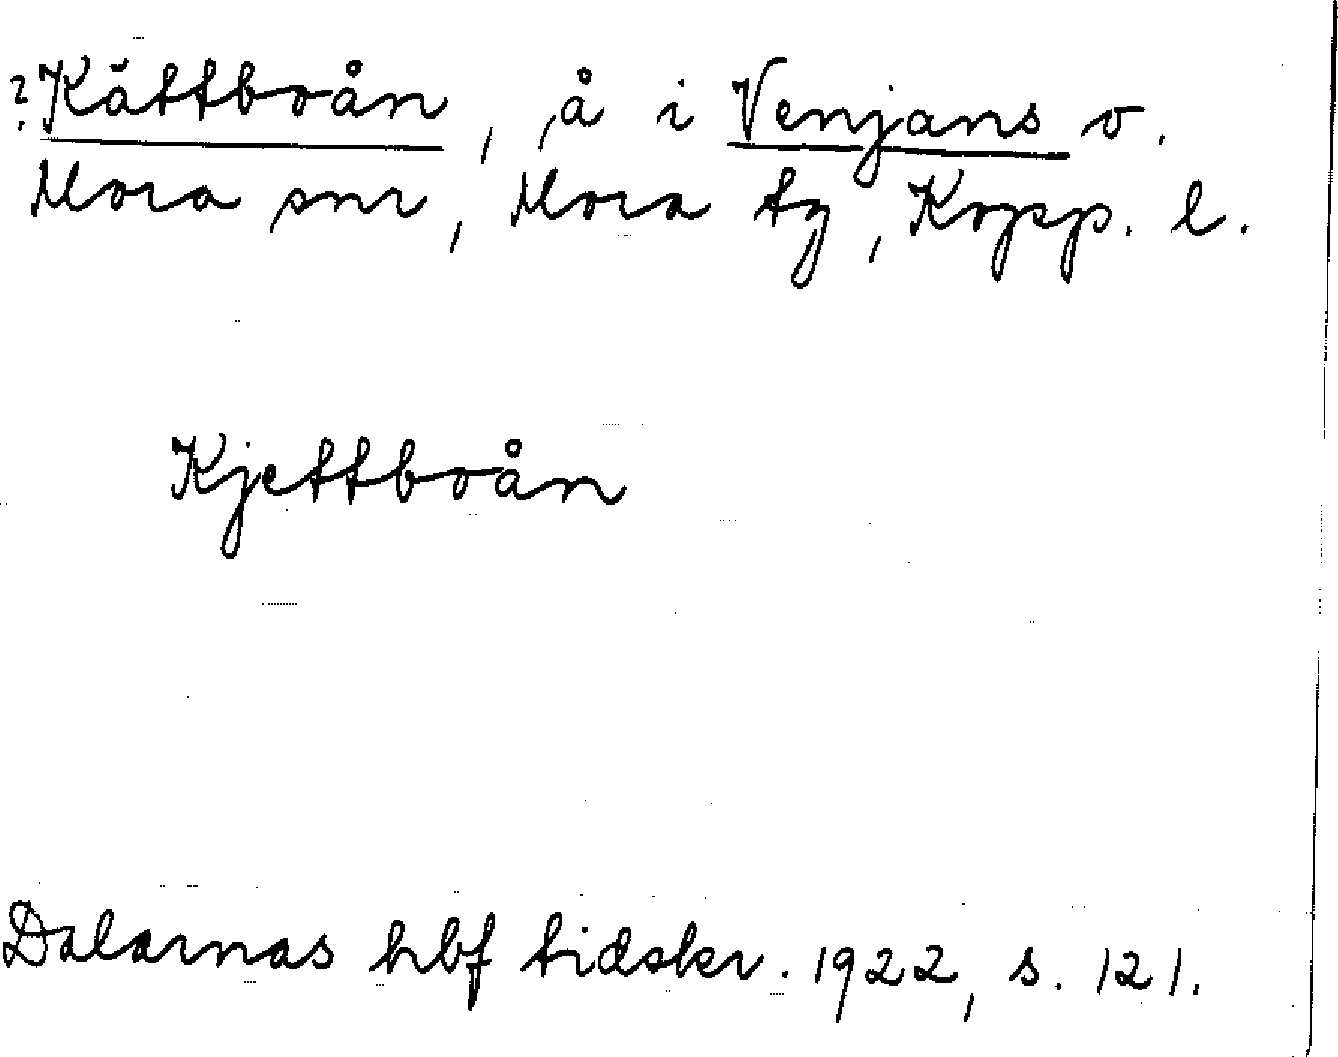 ? Kättboån, å i Venjans o.
Mora snr, Mora tg, Kopp. l.
Kjettboån
Dalarnas hbf tidskr. 1922, s. 121.